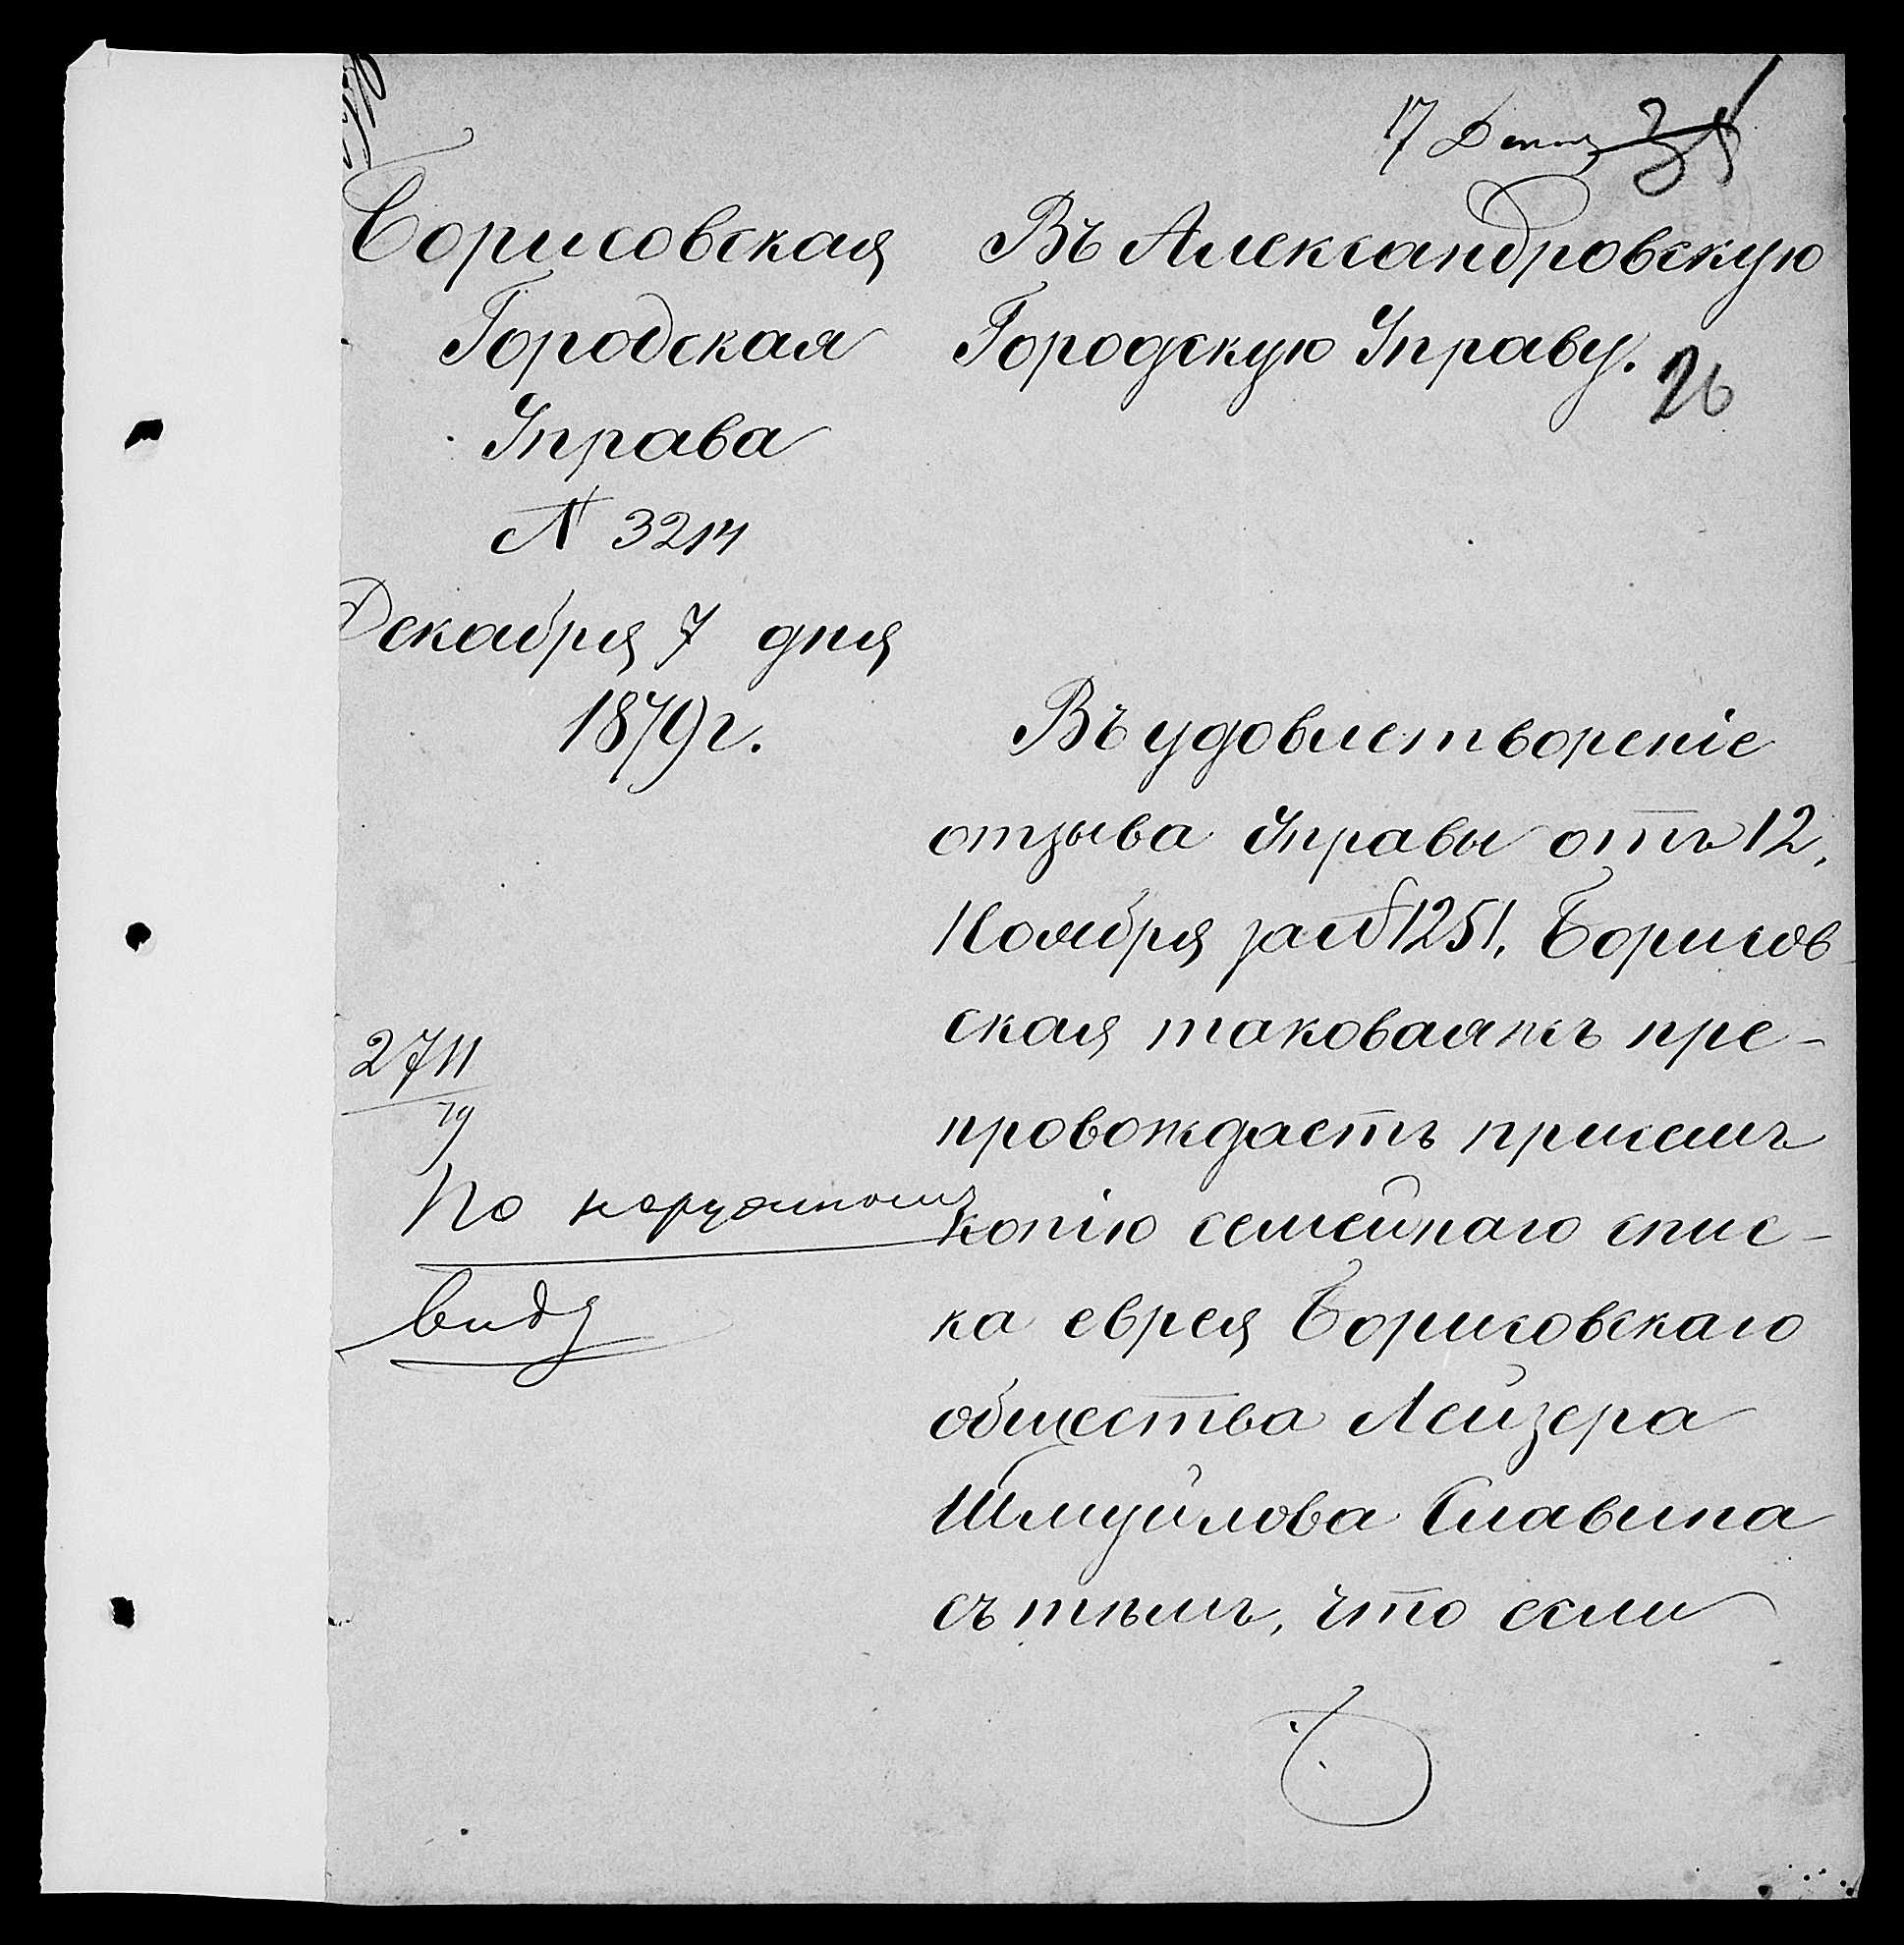 17 Декаб
Борисовская
Городская
Управа
№ 3214
Декабря 7 дня
1879 г.
2711
79
По наружному
виду
Въ Александровскую
Городскую Управу.
26
Въ удовлетвореніе
отзыва Управы отъ 12,
Ноября за № 1251, Борисов
ская таковая жъ пре-
провождаетъ присемъ
копію семейнаго спис-
ка еврея Борисовскаго
общества Лейзера
Шмуйлова Славина
съ тѣмъ, что если